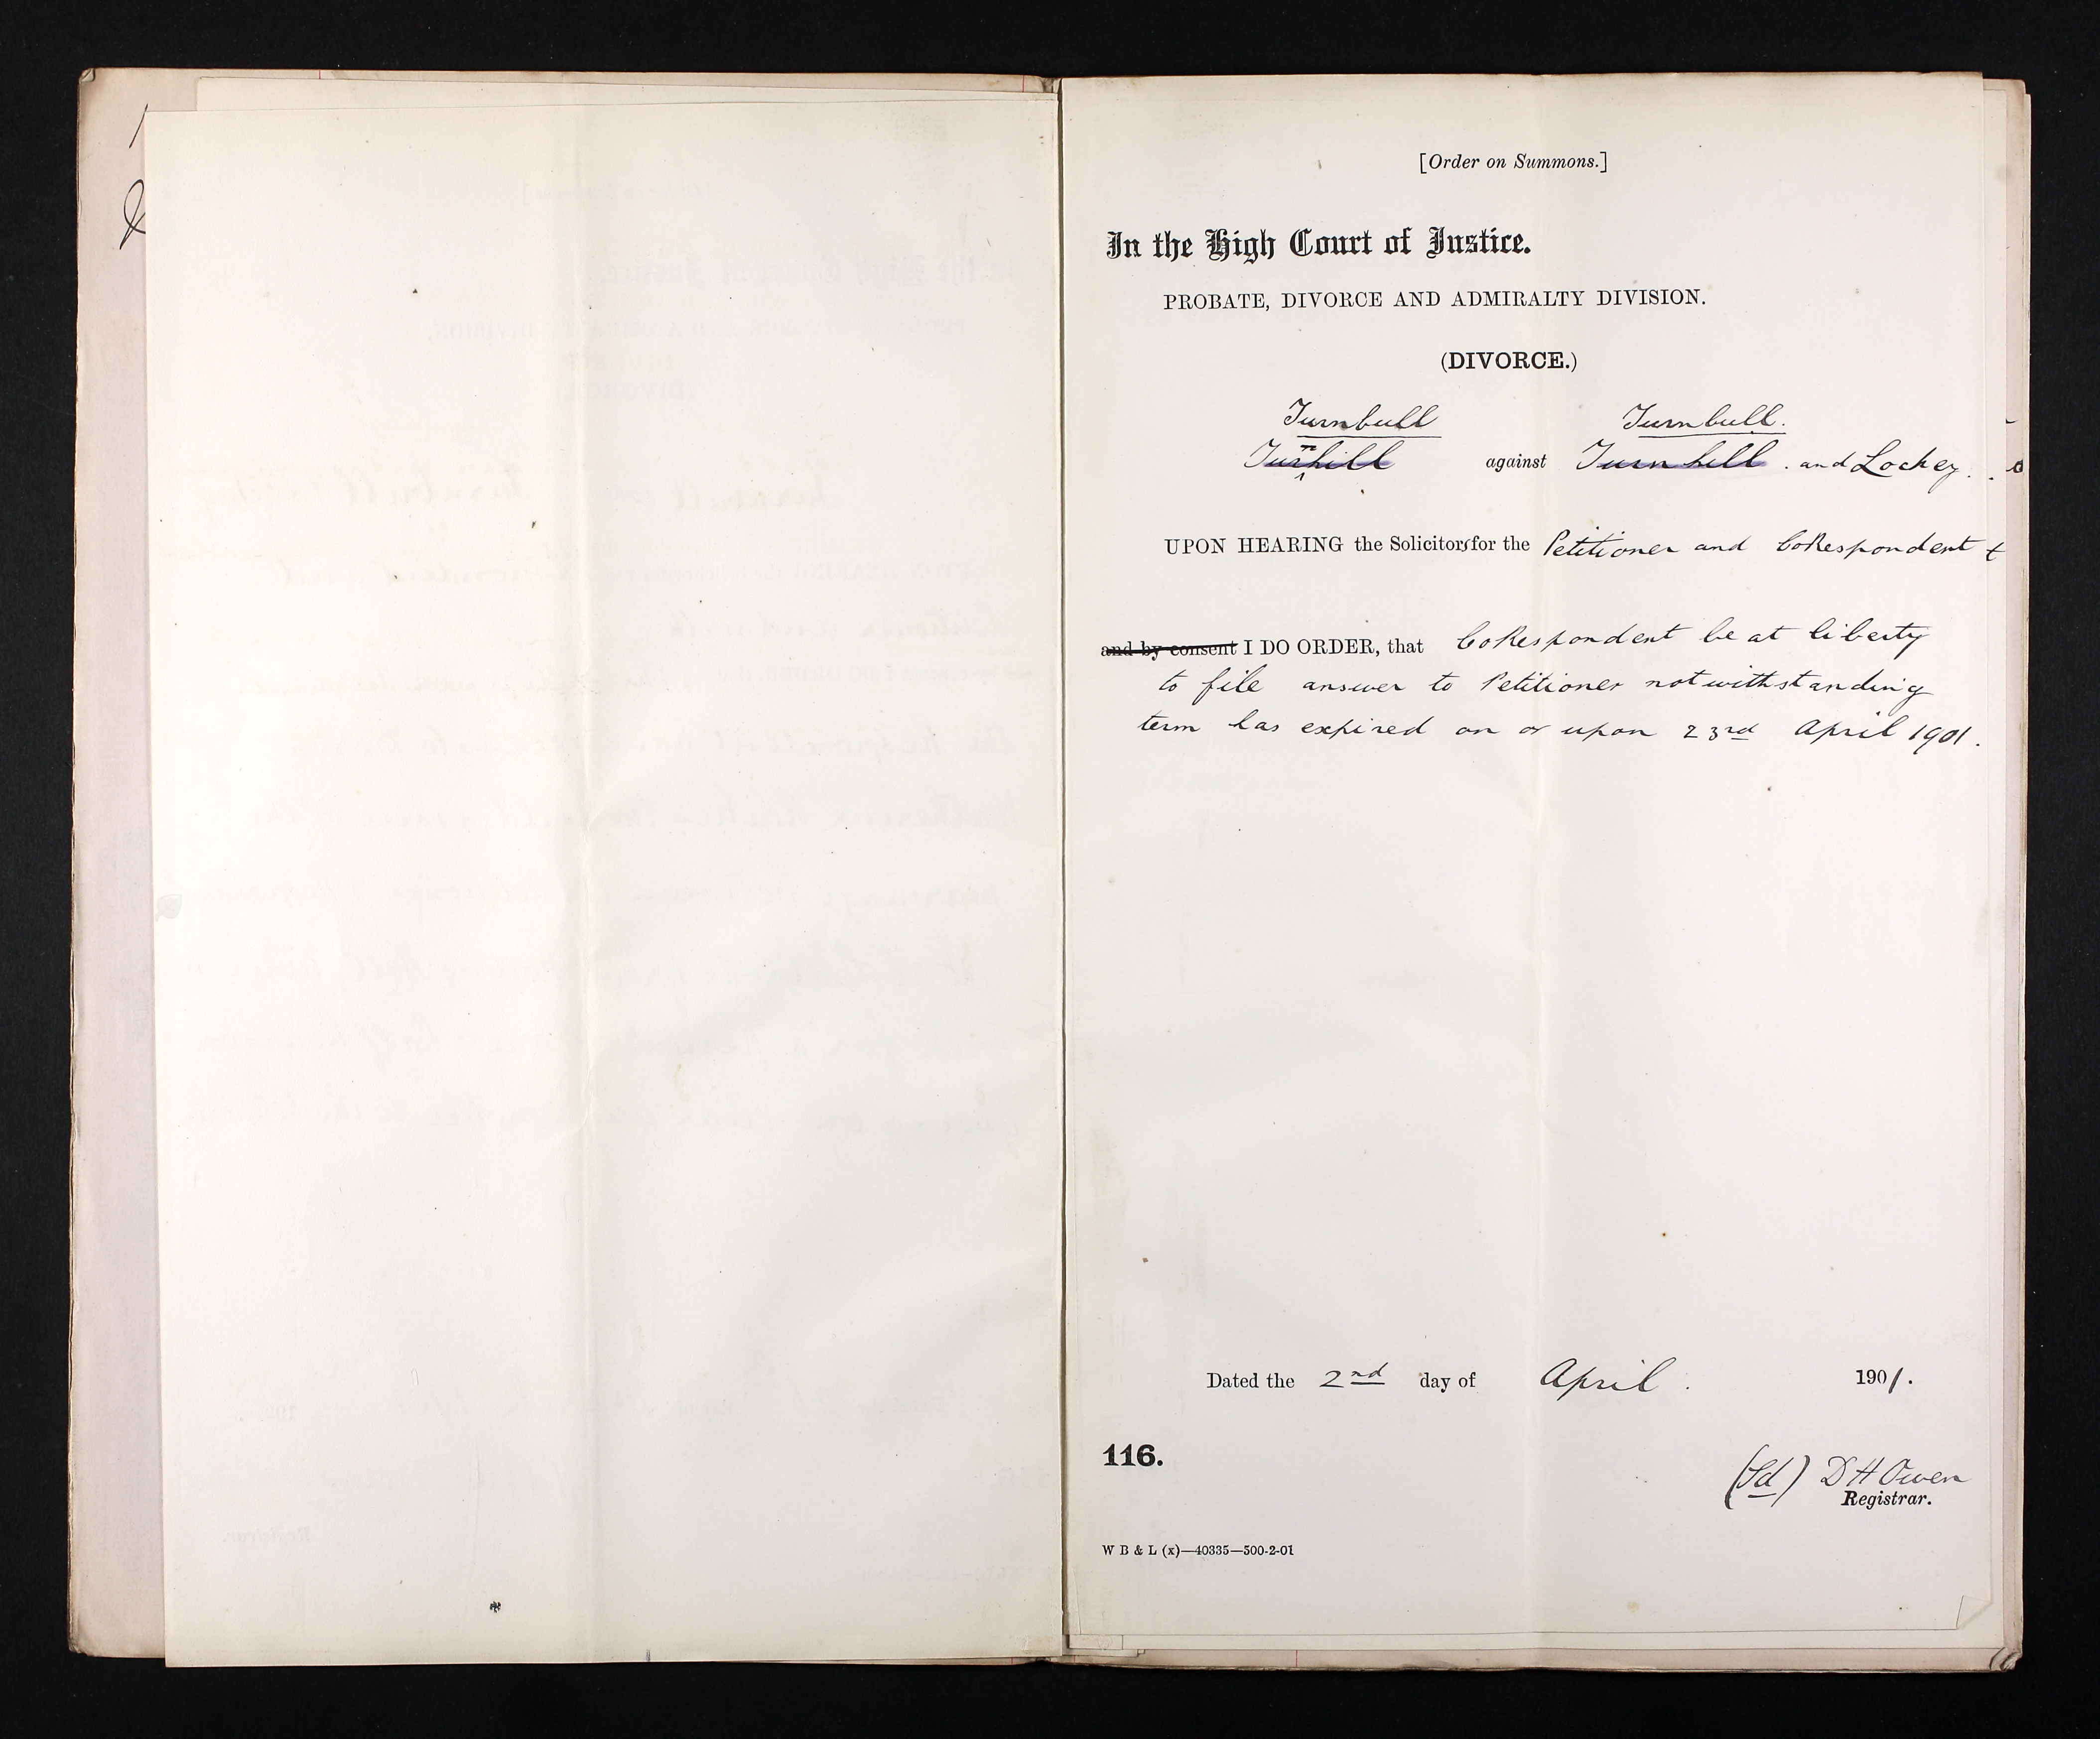 [Order on Summons.]
In the High Court of Justice.
PROBATE, DIVORCE AND ADMIRALTY DIVISION.
(DIVORCE.)
Turnbull Turnbull.
Turnhill against Turnhill. and Lockey.
UPON HEARING the Solicitors for the Petitioner and CoRespondent
and by consent I DO ORDER, that CoRespondent be at liberty
to file answer to Petitioner notwithstanding
term has expired on or upon 23rd April 1901.
Dated the 2nd day of April. 1901.
116.
(Sd) D H Owen
Registrar.
W B & L (x)—40335—500-2-01